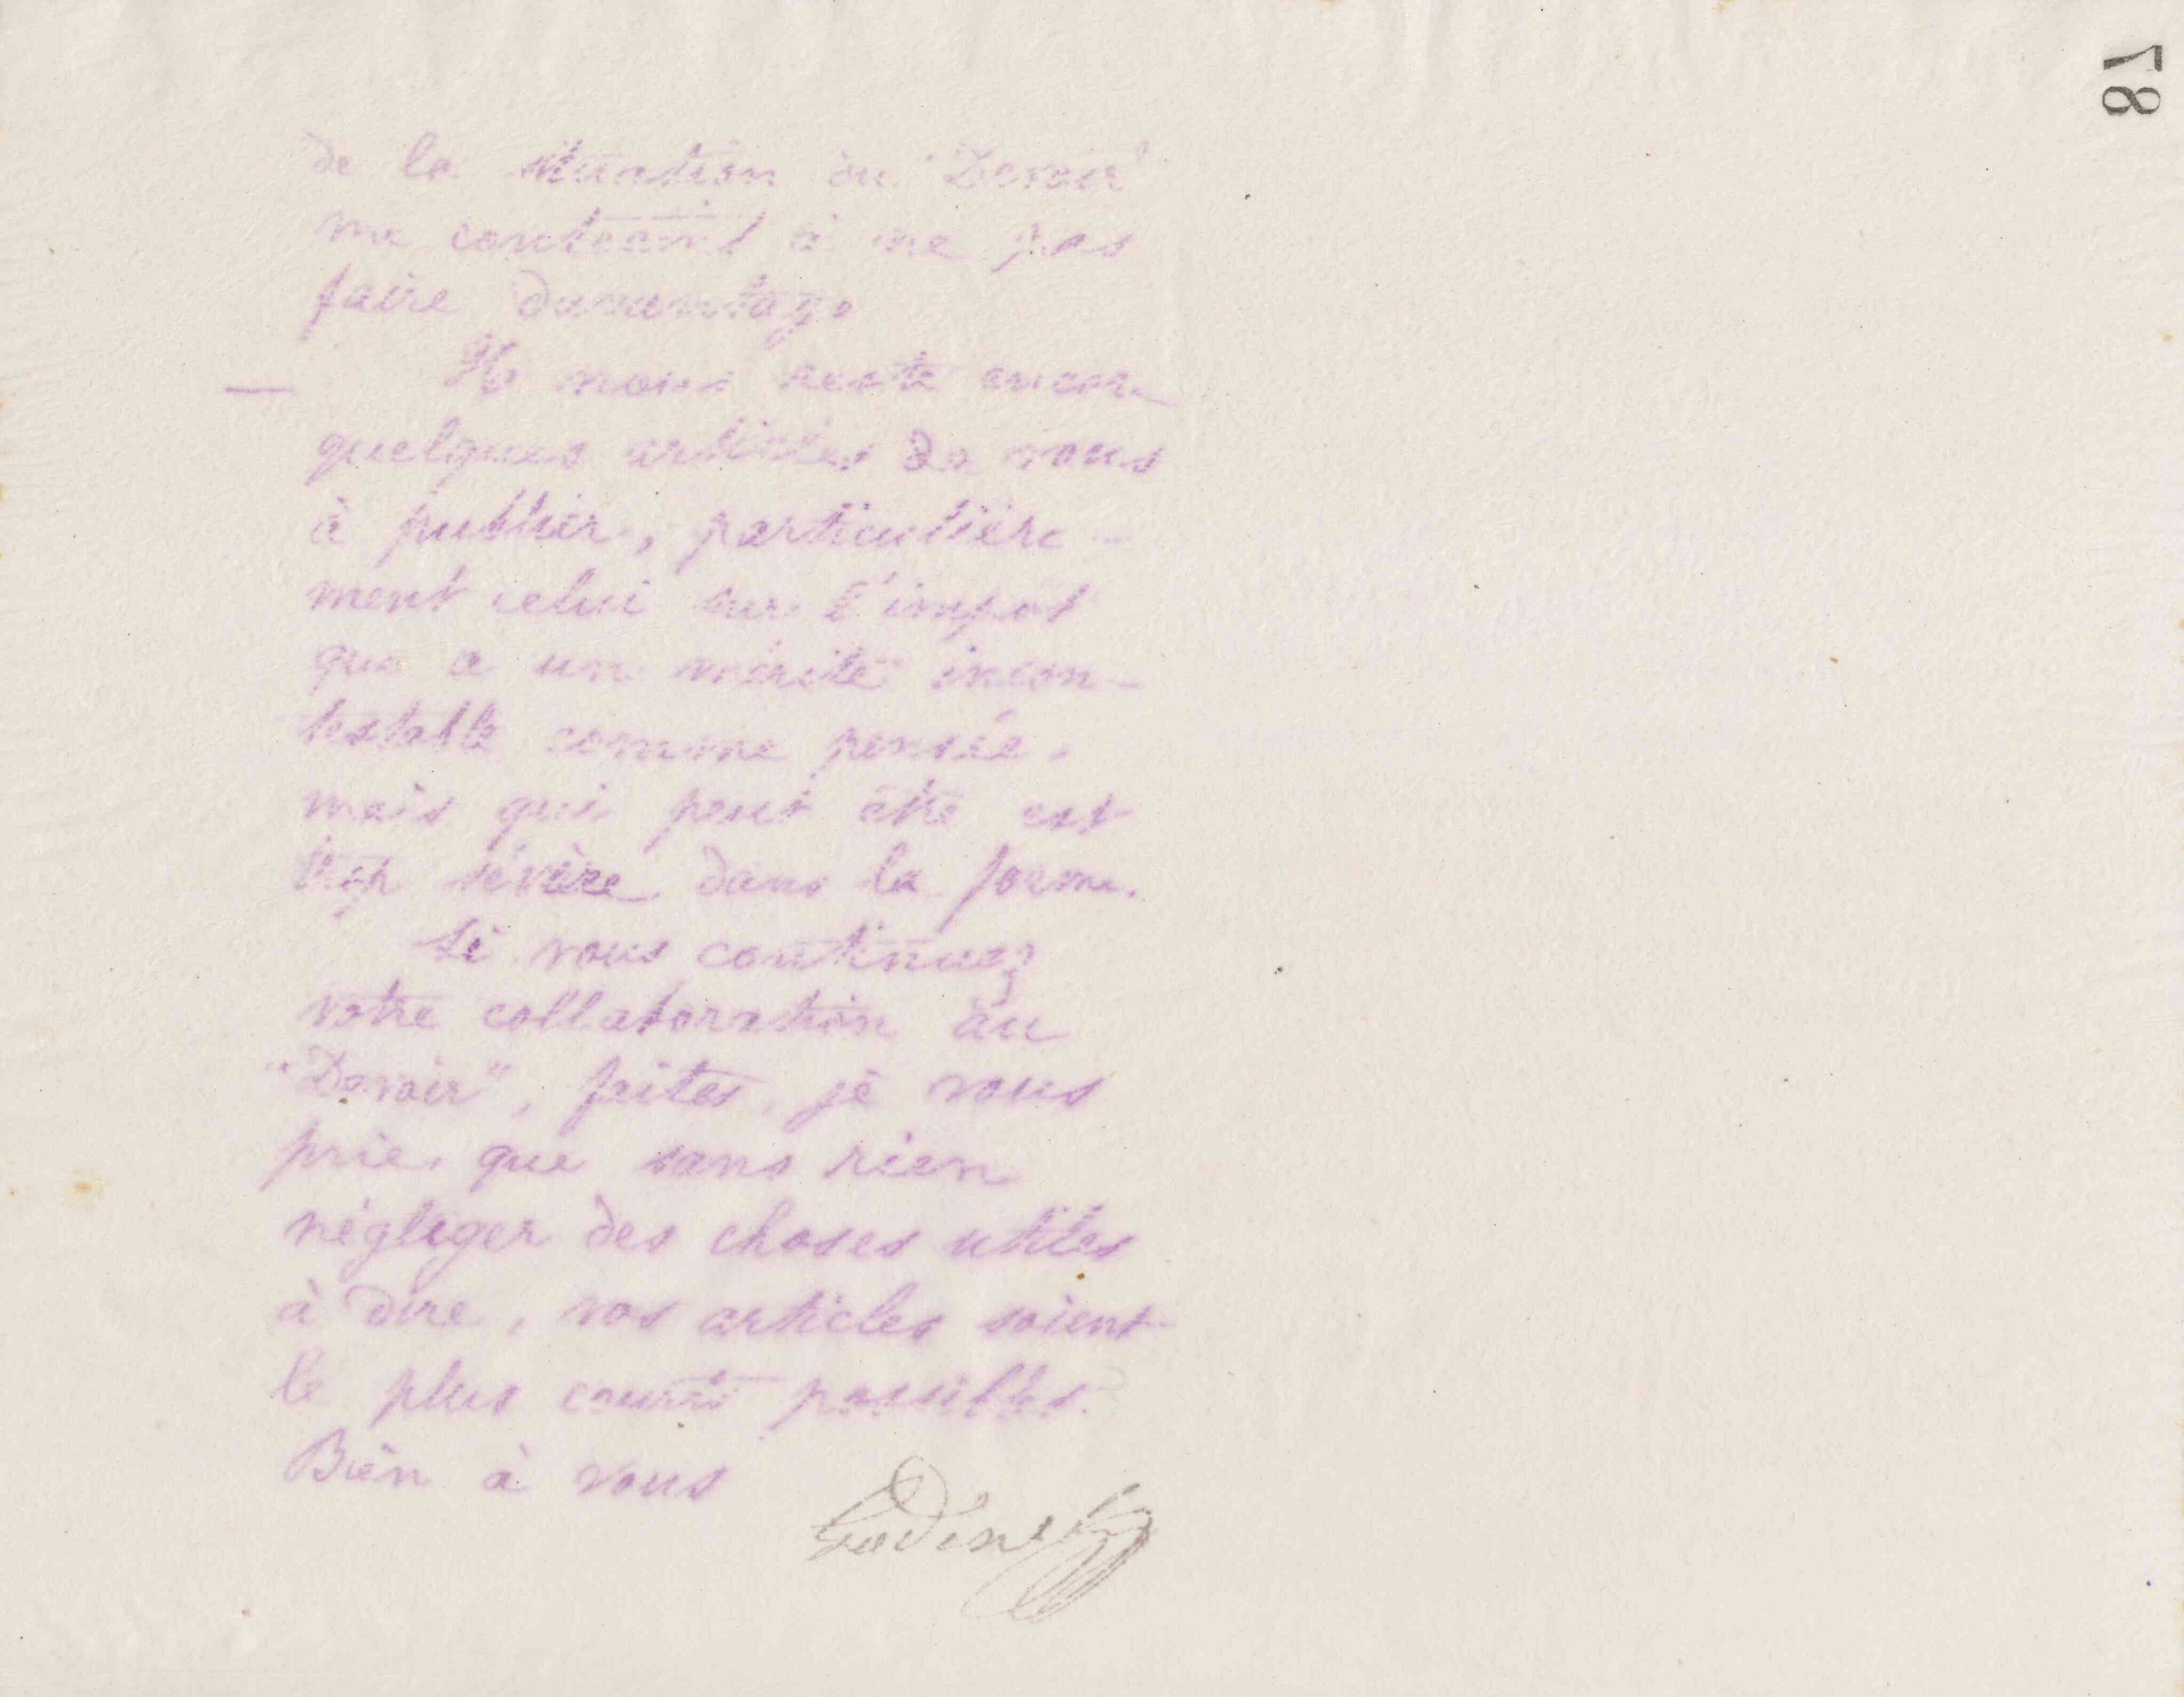 78
de la situation du "Devoir"
me contraint à ne pas
faire davantage
Il nous reste encore
quelques articles de vous
à publier, particulière-
ment celui sur l'impot
que a un mérite incon-
testable comme pensée,
mais qui peut être est
trop sévère dans la forme.
Si vous continuez
votre collaboration au
"Devoir", faites, je vous
prie, que sans rien
négliger des choses utiles
à dire, vos articles soient
le plus courts possibles.
Bien à vous
Godin